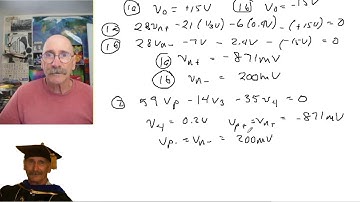 (1a) v₀ = +15V (1b) v₀ = -15V
(1a) 28vn+ - 21(1/3V) - 6(0.4V) - (+15V) = 0
(1b) 28vn- - 7V - 2.4V - (-15V) = 0
(1a) vn+ = -871mV
(1b) vn- = 200mV
(2) 59vp - 14v3 - 35v4 = 0
v4 = 0.2V vp+ = vn+ = -871mV
vp- = vn- = 200mV